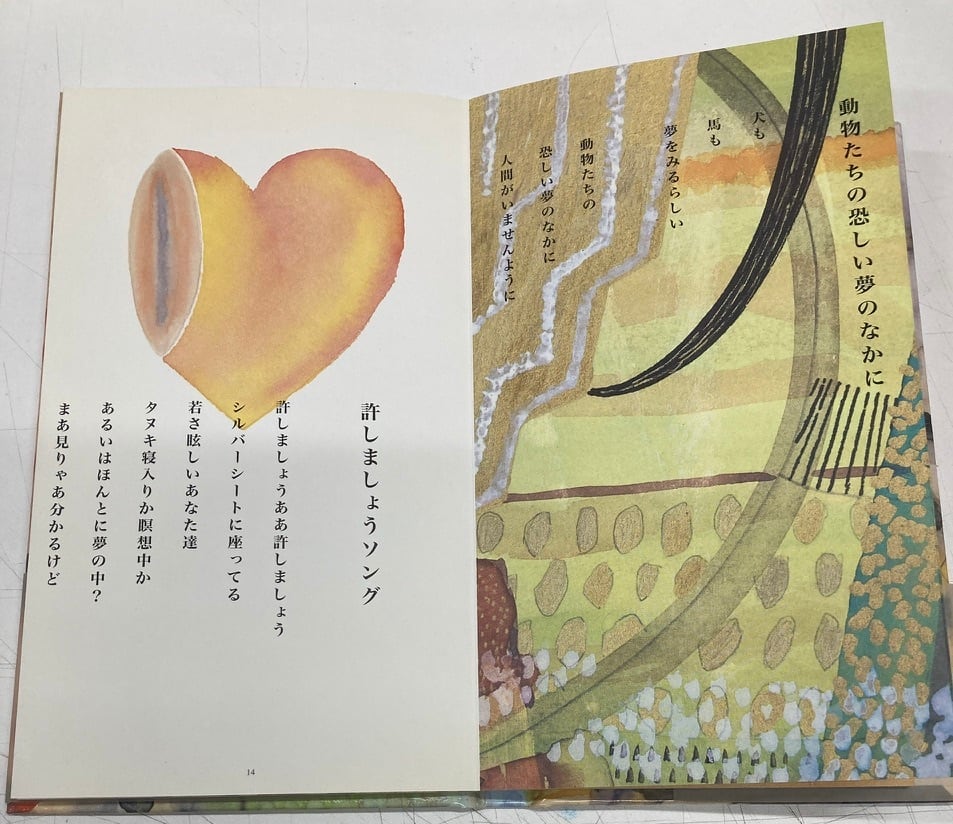 動物たちの恐しい夢のなかに
犬も
馬も
夢をみるらしい
動物たちの
恐しい夢のなかに
人間がいませんように
許しましょうソング
許しましょうああ許しましょう
シルバーシートに座ってる
若さ眩しいあなた達
タヌキ寝入りか瞑想中か
あるいはほんとに夢の中？
まあ見りゃあ分かるけど
14